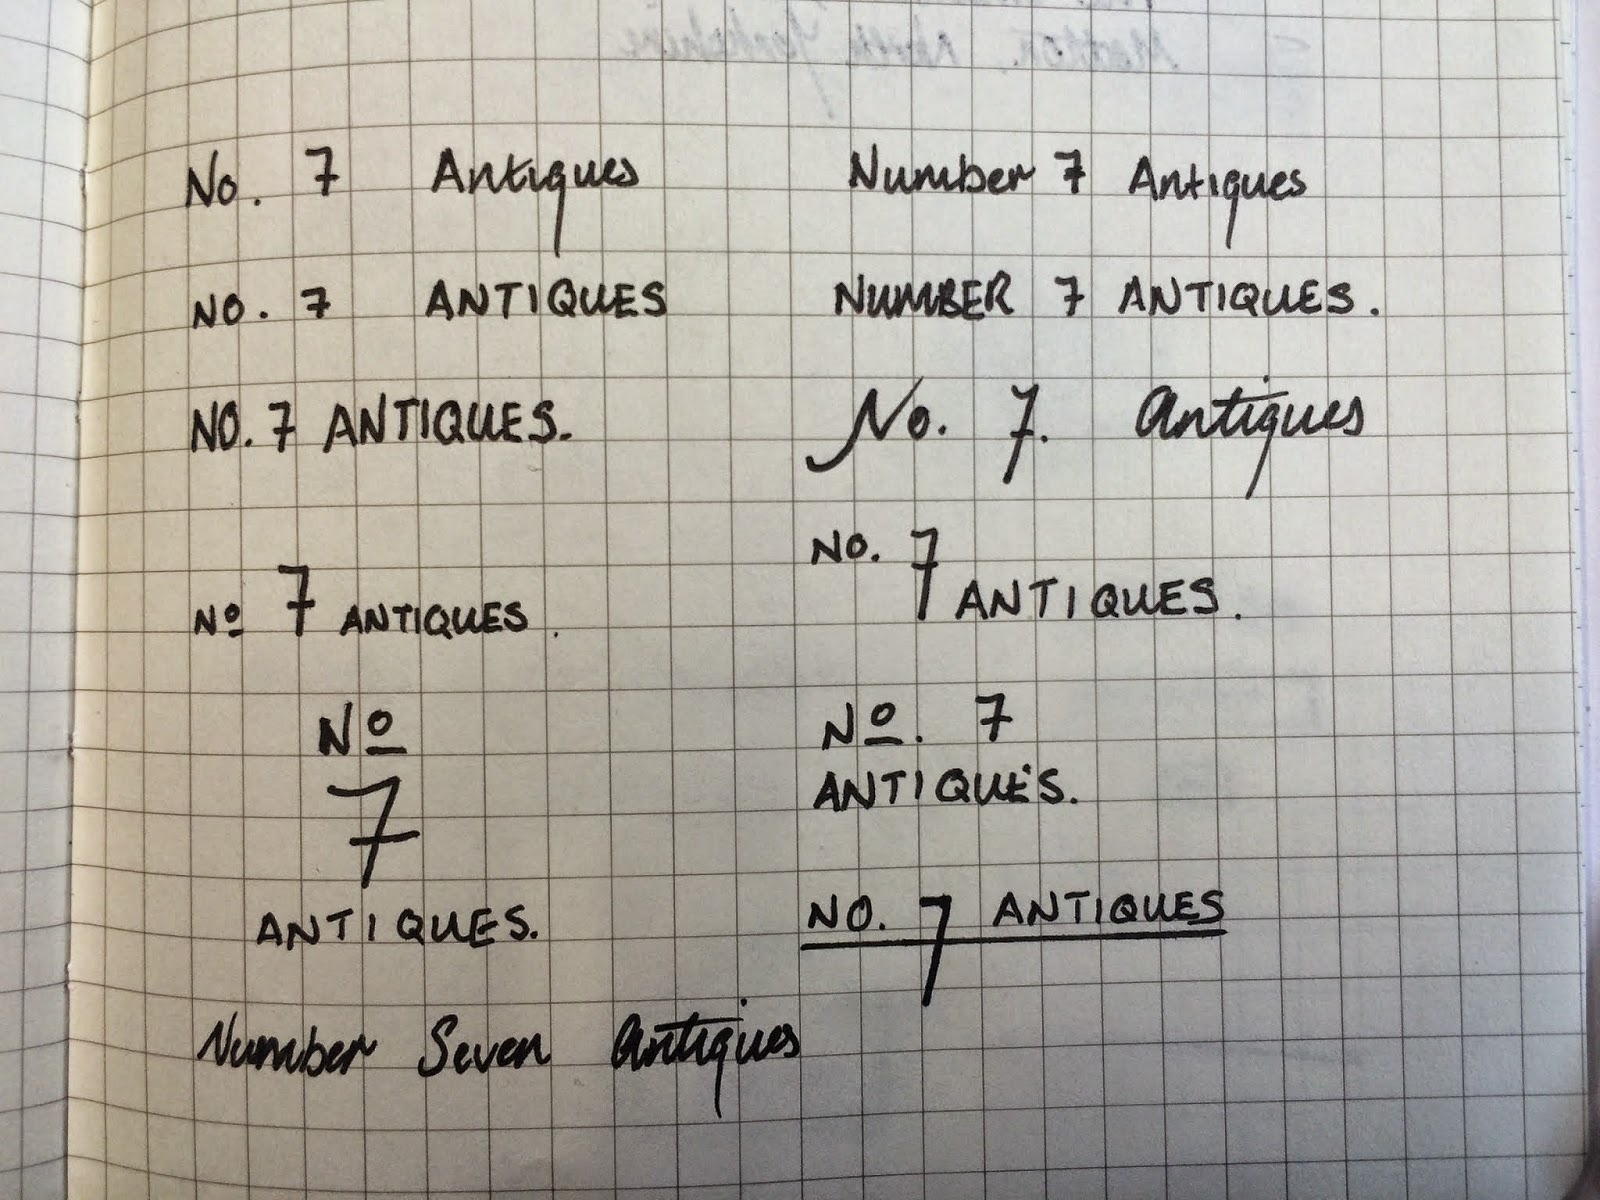 No. 7 Antiques
Number 7 Antiques
NO. 7 ANTIQUES
NUMBER 7 ANTIQUES.
NO. 7 ANTIQUES.
No. 7. Antiques
Nº 7 ANTIQUES.
NO. 7
ANTIQUES.
Nº
7
ANTIQUES.
Nº. 7
ANTIQUES.
NO. 7 ANTIQUES
Number Seven Antiques